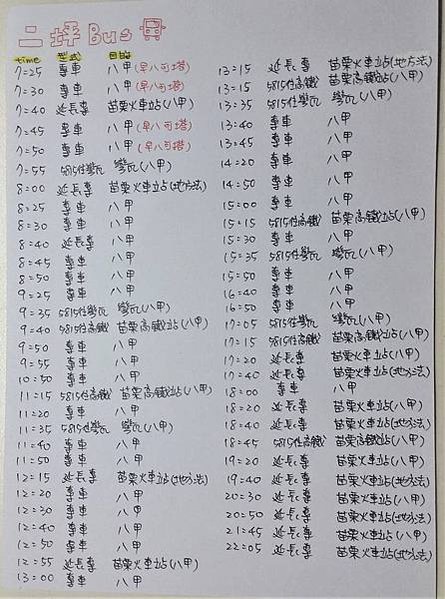 二坪Bus
time 型式 目的
7:25 專車 八甲(早八可搭)
7:30 專車 八甲(早八可搭)
7:40 延長專 苗栗火車站(八甲)
7:45 專車 八甲(早八可搭)
7:50 專車 八甲(早八可搭)
7:55 5815往彎瓦 彎瓦(八甲)
8:00 延長專 苗栗火車站(地方法)
8:25 專車 八甲
8:30 專車 八甲
8:40 延長專 八甲
8:45 專車 八甲
8:50 專車 八甲
9:25 專車 八甲
9:35 5815往彎瓦 彎瓦(八甲)
9:40 5815往高鐵 苗栗高鐵站(八甲)
9:50 專車 八甲
9:55 專車 八甲
10:50 專車 八甲
11:15 5815往高鐵 苗栗高鐵站(八甲)
11:20 專車 八甲
11:35 5815往彎瓦 彎瓦(八甲)
11:40 專車 八甲
11:50 專車 八甲
12:15 延長專 苗栗火車站(地方法)
12:20 專車 八甲
12:30 專車 八甲
12:40 專車 八甲
12:50 專車 八甲
12:55 延長專 苗栗火車站(八甲)
13:00 專車 八甲
13:15 延長專 苗栗火車站(地方法)
13:15 5815往高鐵 苗栗高鐵站(八甲)
13:35 5815往彎瓦 彎瓦(八甲)
13:40 專車 八甲
13:45 專車 八甲
14:20 專車 八甲
14:50 專車 八甲
15:00 專車 八甲
15:15 5815往高鐵 苗栗高鐵站(八甲)
15:30 專車 八甲
15:35 5815往彎瓦 彎瓦(八甲)
15:50 專車 八甲
16:40 專車 八甲
16:50 專車 八甲
17:05 5815往彎瓦 彎瓦(八甲)
17:15 5815往高鐵 苗栗高鐵站(八甲)
17:20 延長專 苗栗火車站(八甲)
17:40 延長專 苗栗火車站(地方法)
18:00 專車 八甲
18:20 延長專 苗栗火車站(八甲)
18:40 延長專 苗栗火車站(地方法)
18:45 5815往高鐵 苗栗高鐵站(八甲)
19:20 延長專 苗栗火車站(八甲)
19:40 延長專 苗栗火車站(地方法)
20:30 延長專 苗栗火車站(八甲)
20:50 延長專 苗栗火車站(地方法)
21:45 延長專 苗栗火車站(八甲)
22:05 延長專 苗栗火車站(地方法)